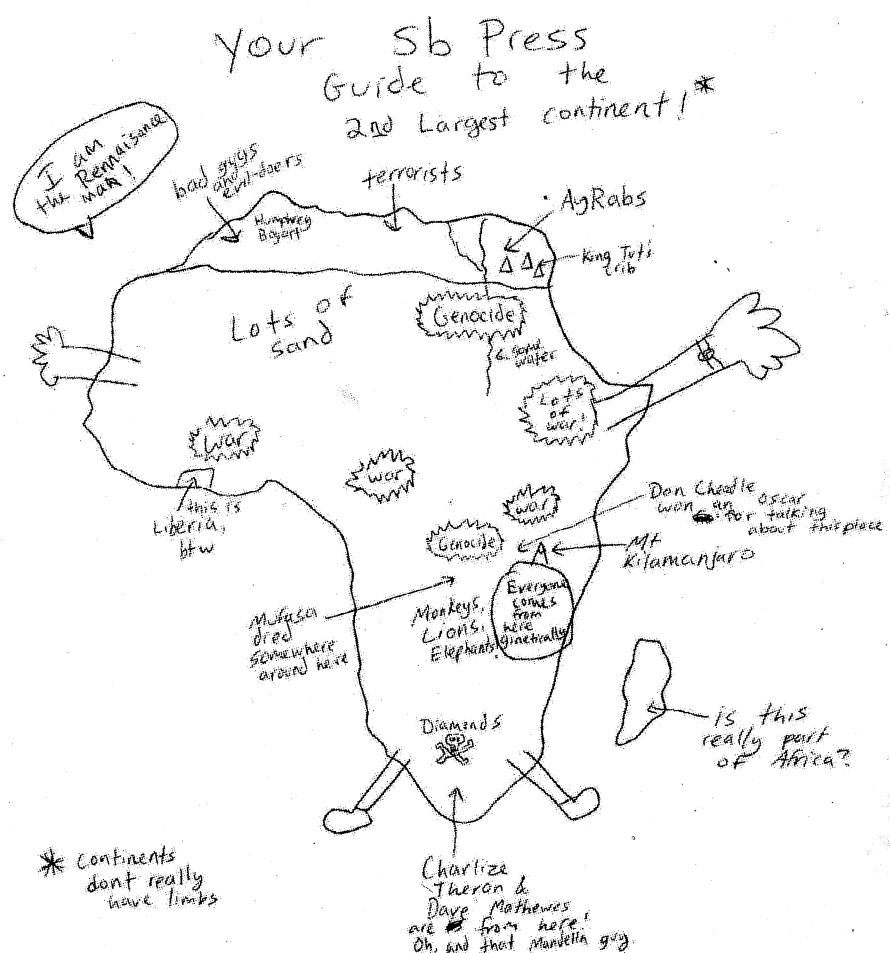 Your Sb Press
Guide to the
2nd Largest continent!*
I am
the Rennaisance
man!
bad guys
and
evil-doers
terrorists
Humphrey
Bogart
AyRabs
King Tut's
crib
Lots of
sand
Genocide
some
water
Lots
of
war!
war
war
war
this is
Liberia,
btw
Don Cheadle
won an oscar
for talking
about this place
Genocide
Mt
Kilamanjaro
Mufasa
died
somewhere
around here
Monkeys,
Lions,
Elephants!
Everyone
comes
from
here
ginetically
is this
really part
of Africa?
Diamonds
* Continents
dont really
have limbs
Charlize
Theron &
Dave Mathewes
are from here!
Oh, and that Mandella guy